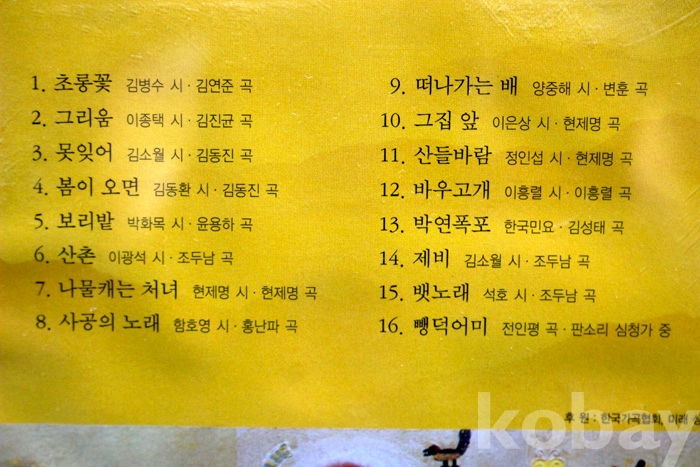 1. 초롱꽃 김병수 시·김연준 곡
2. 그리움 이종택 시·김진균 곡
3. 못잊어 김소월 시·김동진 곡
4. 봄이 오면 김동환 시·김동진 곡
5. 보리밭 박화목 시·윤용하 곡
6. 산촌 이광석 시·조두남 곡
7. 나물캐는 처녀 현제명 시·현제명 곡
8. 사공의 노래 함호영 시·홍난파 곡
9. 떠나가는 배 양중해 시·변훈 곡
10. 그집 앞 이은상 시·현제명 곡
11. 산들바람 정인섭 시·현제명 곡
12. 바우고개 이흥렬 시·이흥렬 곡
13. 박연폭포 한국민요·김성태 곡
14. 제비 김소월 시·조두남 곡
15. 뱃노래 석호 시·조두남 곡
16. 뺑덕어미 전인평 곡·판소리 심청가 중
후원 : 한국가곡협회, 미래
kobay